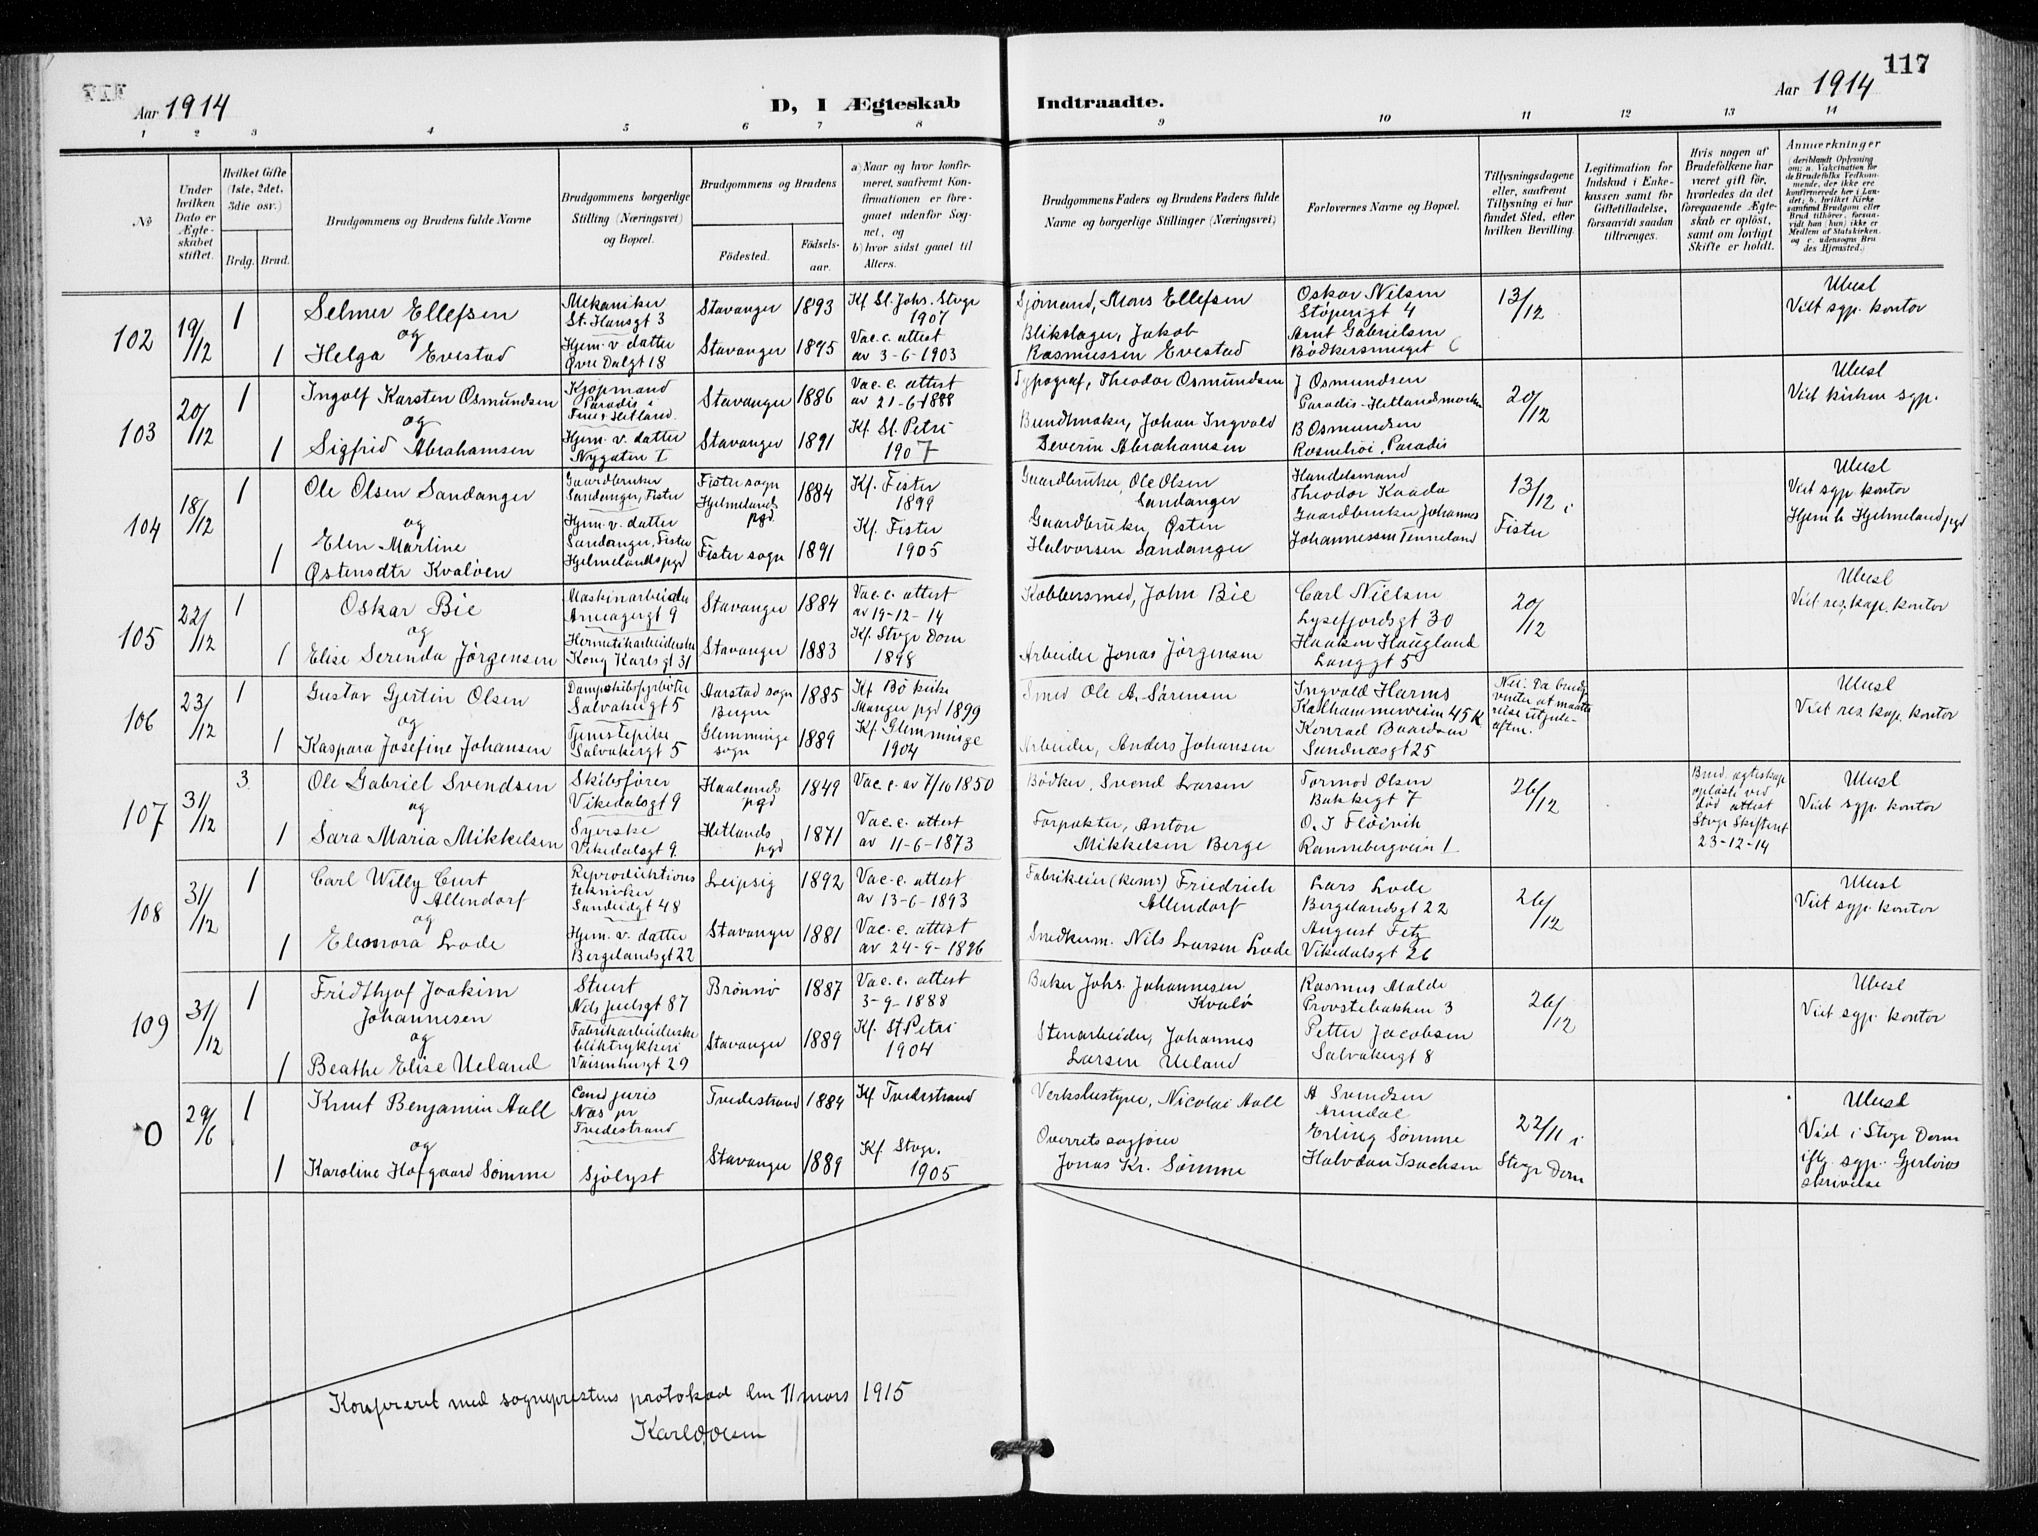 117
Aar 1914
D, I Ægteskab Indtraadte.
Aar 1914
1 2 3 4 5 6 7 8 9 10 11 12 13 14
No
Under hvilken Dato er Ægteskabet stiftet.
Hvilket Gifte (1ste, 2det, 3die osv.)
Brdg. Brud.
Brudgommens og Brudens fulde Navne
Brudgommens borgerlige Stilling (Næringsvei) og Bopæl.
Brudgommens og Brudens
Födested.
Födsels-aar.
a) Naar og hvor konfirmeret, saafremt Konfirmationen er foregaaet udenfor Sognet, og
b) hvor sidst gaaet til Alters.
Brudgommens Faders og Brudens Faders fulde Navne og borgerlige Stillinger (Næringsvei)
Forlovernes Navne og Bopæl.
Tillysningsdagene eller, saafremt Tillysning ei har fundet Sted, efter hvilken Bevilling.
Legitimation for Indskud i Enkekassen samt for Giftetilladelse, forsaavidt saadan tiltrænges.
Hvis nogen af Brudefolkene har været gift før, hvorledes da det foregaaende Ægteskab er oplöst, samt om lovligt Skifte er holdt.
Anmærkninger
(deriblandt Oplysning om: a. Vakcination for de Brudefolks Vedkommende, der ikke ere konfirmerede her i Landet; b. hvilket Kirkesamfund Brudgom eller Brud tilhörer, forsaavidt han (hun) ikke er Medlem af Statskirken, og c. udensogns Brudes Hjemsted.)
102 19/12 1
Selmer Ellefsen
og
1 Helga Evestad
Mekaniker
St. Hansgt 3
Hjem. v. datter
Øvre Dalgt 18
Stavanger 1893
Stavanger 1895
Kf. St. Johs. Stvgr
1907
Vac. c. attest
av 3-6-1903
Sjømand, Mons Ellefsen
Blikslager, Jakob
Rasmussen Evestad
Oskar Nilsen
Støperigt 4
Arnt Gabrielsen
Bødkersmuget 6
13/12
Ubesl
Viet sgp. kontor
103 20/12 1
Ingolf Karsten Osmundsen
og
1 Sigfrid Abrahamsen
Kjøpmand
Paradis i
Hetland.
Hjem. v. datter
Nygaten 1
Stavanger 1886
Stavanger 1891
Vac. c. attest
av 21-6-1888
Kf. St. Petri
1907
Typograf, Theodor Osmundsen
Bundtmaker, Johan Ingvald
Severin Abrahamsen
J Osmundsen
Paradis-Hetlandsmarken
B Osmundsen
Rosenhøi, Paradis
20/12
Ubesl
Viet kirken sgp.
104 18/12 1
Ole Olsen Sandanger
og
1 Elen Martine
Østensdtr Kvaløen
Gaardbruker
Sandanger, Fister
Hjem. v. datter
Sandanger, Fister
Hjelmelands pgd
Fister sogn
Hjelmelands
pgd 1884
Fister sogn 1891
Kf. Fister
1899
Kf. Fister
1905
Gaardbruker, Ole Olsen
Sandanger
Gaardbruker, Østen
Halvorsen Sandanger
Handelsmand
Theodor Kaada
Gaardbruker Johannes
Johannessen Tenneland
13/12 i
Fister
Ubesl
Viet sgp kontor
Hjem h. Hjelmeland pgd
105 22/12 1
Oskar Bie
og
1 Elise Serenda Jørgensen
Maskinarbeider
Ameagergt 9
Hermetikarbeiderske
Kong Karlsgt 31
Stavanger 1884
Stavanger 1883
Vac. c. attest
av 19-12-14
Kf. Stvgr Dom
1898
Kobbersmed, John Bie
Arbeider Jonas Jørgensen
Carl Nielsen
Lysefjordsgt 30
Haaken Haugland
Langgt 5
20/12
Ubesl
Viet res. kap. kontor
106 23/12 1
Gustav Gjertin Olsen
og
1 Kaspara Josefine Johansen
Dampskibsfyrbøter
Salvakergt 5
Tjenestepike
Salvakergt 5
Aarstad sogn
Bergen 1885
Glemminge
sogn 1889
Kf Bø kirke
Manger pgd 1899
Kf. Glemminge
1904
Smed Ole A. Sørensen
Arbeider, Anders Johansen
Ingvald Harms
Kalhammerveien 45 K
Konrad Baardsen
Sandnæsgt 25
Ubesl
Viet res kap. kontor
107 31/12 3
Ole Gabriel Svendsen
og
1 Sara Maria Mikkelsen
Skibsfører
Vikedalsgt 9
Syerske
Vikedalsgt 9.
Haalands
pgd 1849
Hetlands
pgd 1871
Vac. c. av 7/10 1850
Vac. c. attest
av 11-6-1873
Bødker, Svend Larsen
Forpakter, Anton
Mikkelsen Berge
Tormod Olsen
Bakkegt 7
O. J Fløivik
Rannebergveien 1
26/12
Brud. egteskap
opløst ved
død attest
Stvgr Skifteret
23-12-14
Ubesl
Viet sgp. kontor
108 31/12 1
Carl Willy Curt
Allendorf
og
1 Eleonora Lode
Reproduktions
tekniker
Sandeidgt 48
Hjem. v. datter
Bergelandsgt 22
Leipsig 1892
Stavanger 1881
Vac. c. attest
av 13-6-1893
Vac. c. attest
av 24-9-1896
Friedrich
Allendorf
Snedkerm. Nils Larsen Lode
Lars Lode
Bergelandsgt 22
August Fetz
Vikedalsgt 26
26/12
Ubesl
Viet sgp. kontor
109 31/12 1
Fridthjof Joakim
Johannesen
og
1 Beathe Elise Ueland
Stuert
Nils Juelsgt 87
Fabrikarbeiderske
bliktrykkeri
Vaisenhusgt 29
Brønnø 1887
Stavanger 1889
Vac. c. attest
3-9-1888
Kf. St Petri
1904
Baker Johs. Johannesen
Kvalø
Stenarbeider, Johannes
Larsen Ueland
Rasmus Malde
Provstebakken 3
Petter Jacobsen
Salvakergt 8
26/12
Ubesl
Viet sgp. kontor
0 29/6 1
Knut Benjamin Aall
og
1 Karoline Hofgaard Sømme
Cand juris
Næs pr
Tvedestrand
Sjølyst
Tvedestrand 1884
Stavanger 1889
Kf Tvedestrand
Kf. Stvgr.
1905
Verksbestyrer, Nicolai Aall
Overretssagfører
Jonas Kr. Sømme
A Svendsen
Arendal
Erling Sømme
Halvdan Isachsen
22/11 i
Stvgr Dom
Ubesl
Viet i Stvgr Dom
iflg. sgp. Gjerløws
skrivelse
Konfereret med sogneprestens protokol den 11 mars 1915